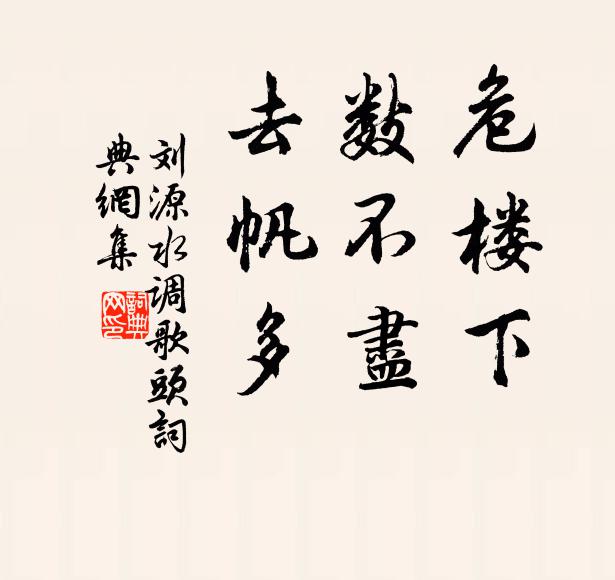 危楼下
数不盡
去帆多
刘源水调歌頭詞
典網集
詞典网印